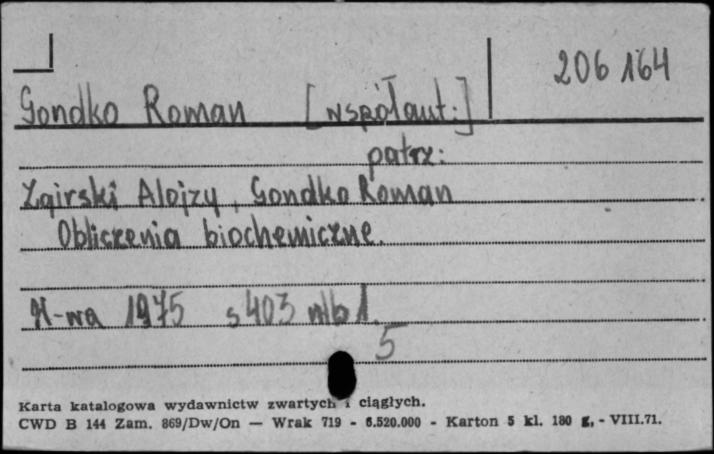 206 164
Gondko Roman [współaut:]
patrz:
Zgirski Alojzy, Gondko Roman
Obliczenia biochemiczne.
W-wa 1975 s 403 nlb 1.
5
Karta katalogowa wydawnictw zwartych i ciągłych.
CWD B 144 Zam. 869/Dw/On — Wrak 719 - 6.520.000 - Karton 5 kl. 180 g, - VIII.71.